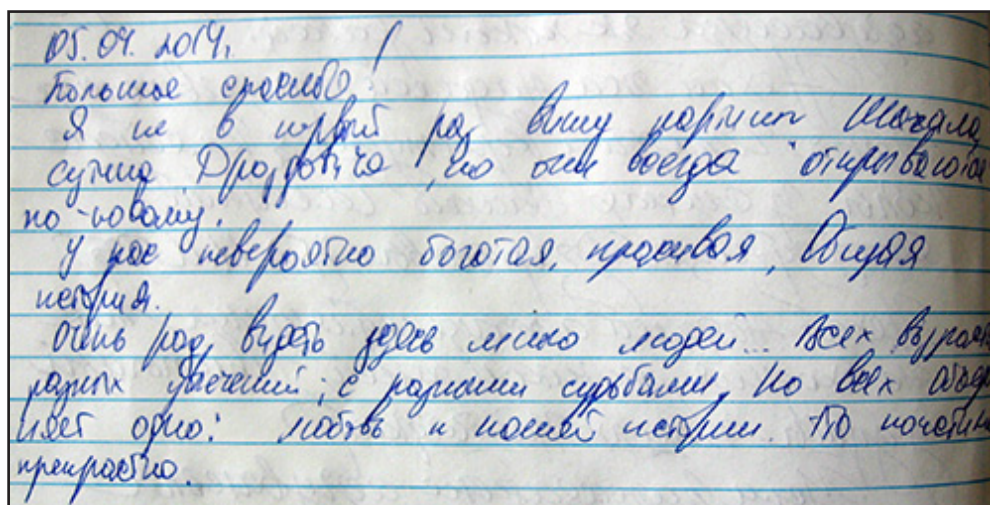 05.04.2014г.
Большое спасибо!
Я не в первый раз вижу картины Шагала,
Сутина, Дроздовича, но они всегда открываются
по-новому.
У нас невероятно богатая, красивая, общая
история.
Очень рад видеть здесь много людей... Всех возраст
разных увлечений, с разными судьбами. Но всех объед
няет одно: любовь к нашей истории. Это поистине
прекрасно.